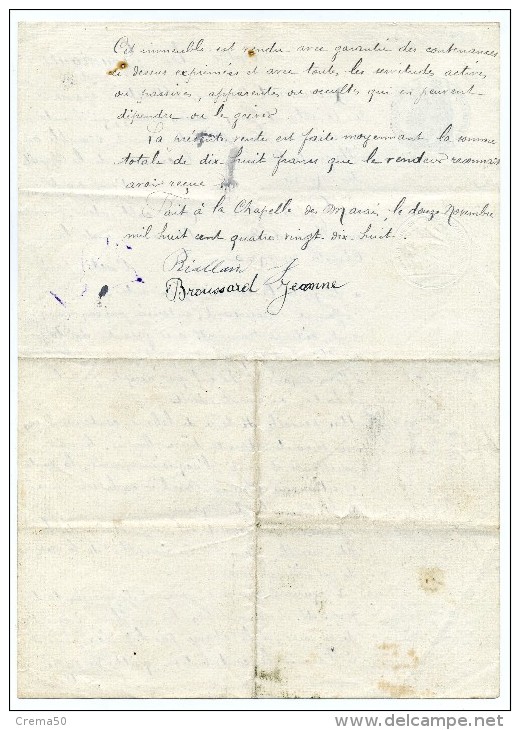 Cet immeuble est vendu avec garantie des contenances
ci dessus exprimées et avec toutes les servitudes actives,
ou passives, apparentes ou occultes qui en peuvent
dépendre ou le grever
La présente vente est faite moyennant la somme
totale de dix huit francs que le vendeur reconnait
avoir reçue
Fait à la Chapelle des Marais, le douze Novembre
mil huit cent quatre vingt dix huit.
Broussard Jeanne
Crema50
delcampe.net